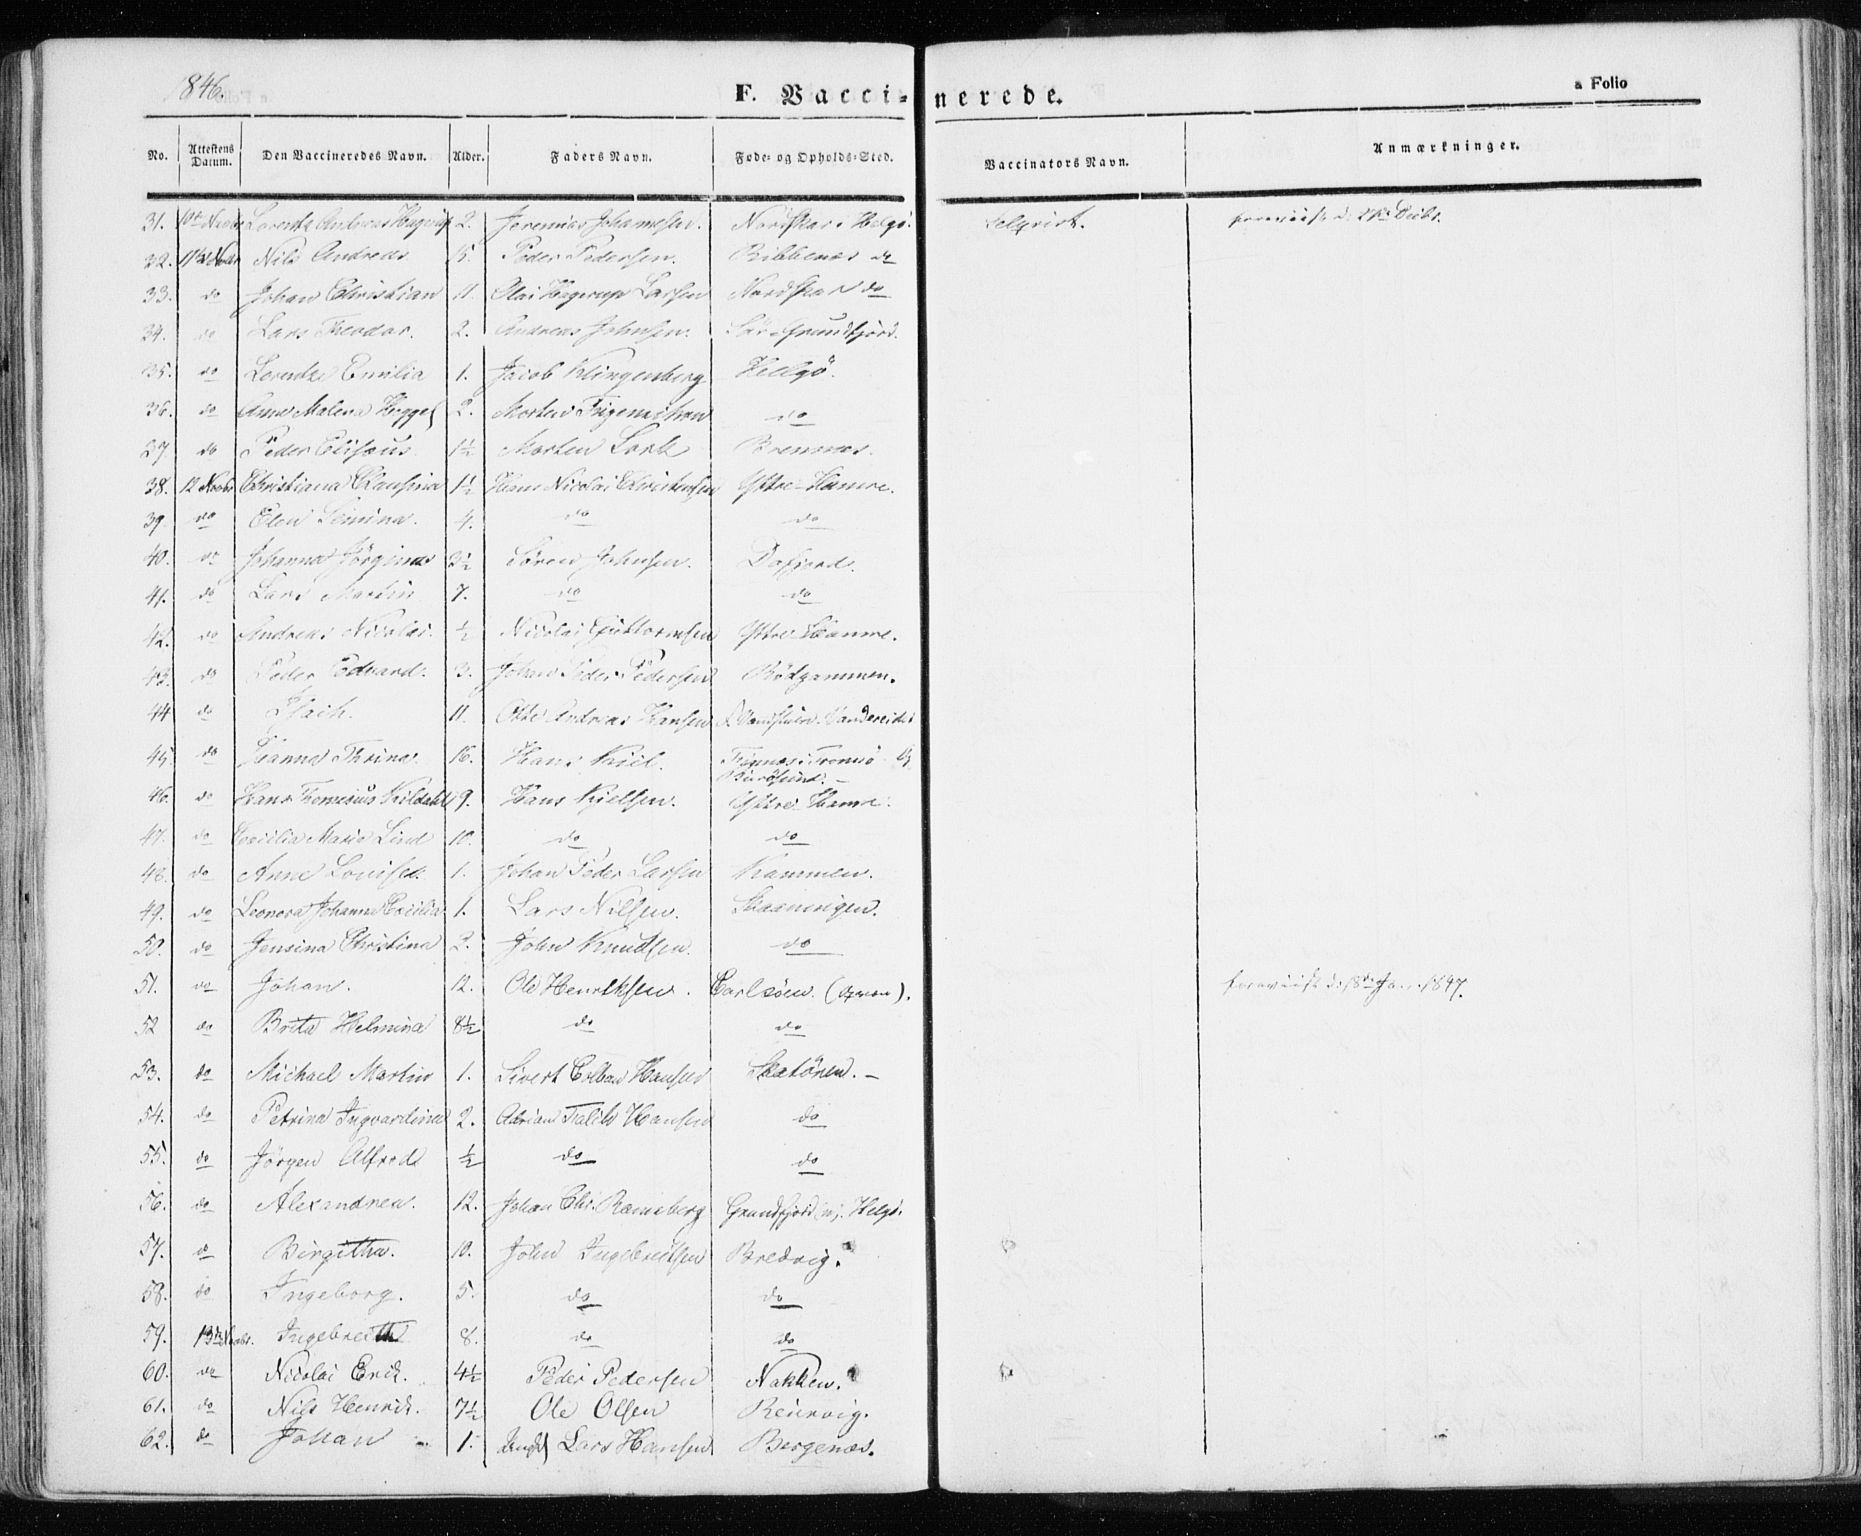 1846.
F. Vaccinerede.
a Folio
No. Attestens Datum. Den Vaccineredes Navn. Alder. Faders Navn. Føde- og Opholds-Sted. Vaccinators Navn. Anmærkninger.
31. Andreas 2. Jeremias Johannesen. Nordskar i Helgö.
32. Nils Andreas 15. Peder Pedersen. Ribbenæs do
33. do Johan Christian 11. Olai Hagerup Larsen Nordskar do
34. do Lars Theodor. 2. Andreas Johnsen. Grundfjord.
35. do Lorentze Emilia 1. Jacob Klingenberg Helgö.
36. do Anne Malena 2. Morten do
37 do Peder Elisæus 1½ Morten Bremnæs.
38. 12 Novbr Christiana Clausina 1½ Hans Nicolai Christensen Yttre-Hamre.
39. do Elen 4. do do
40. do Johanna Jörgina 3½ Sören Johnsen. Dafjord.
41. do Lars Martin 7. do do
42. do Andreas Nicolai. ½ Nicolai Guttormsen Yttre-Hamre.
43. do Peder Edvard. 3. Johan Peder Pedersen Rödgammen.
44 do Isach. 11. Otte Andreas Hansen Vandereidet
45. do Hanna Thrina 16. Hans Kiil. Tromsö
46. do Hans Kildahl 9. Hans Kielsen. Yttre Hamre.
47. do Cecilia Maria Lind 10. do do
48. do Anne Lovise. 1. Johan Peder Larsen Kammen.
49. do Leonora Johanna Cecilia 1. Lars Nilsen. Skaaningen.
50. do Jensina Christina 2. John Knudsen. do
51. do Johan. 12. Ole Henriksen. Carlsöen. 1847.
52 do Brita Helmina 8½ do do
53. do Michael Martin 1. Sivert Colban Hansen
54. do Petrina Ingvardina 2. Adrian Falch Hansen do
55. do Jörgen Alfred ½ do do
56. do Alexandrea. 12. Johan Chr. Ramsberg Grundfjord Helgö.
57. do Birgitha. 10. John Ingebrictsen Bredvig.
58. do Ingeborg. 5. do do
59. 13de Novbr. Ingebrecth 8. do do
60. do Nicolai Erik. 4½ Peder Pedersen Nakken.
61. do Nils Henrik. 7½ Ole Olsen Reinvig.
62. do Johan 1. Lars Hansen Bergenæs.